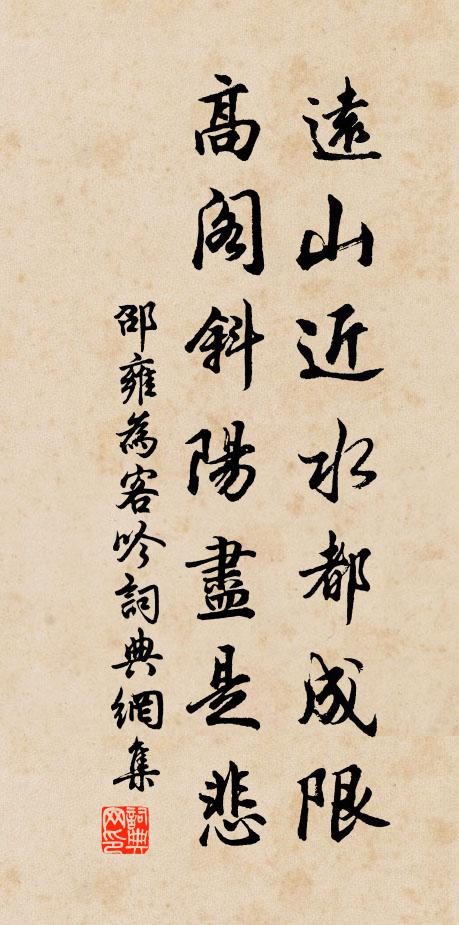 遠山近水都成限
高閣斜陽盡是悲
邵雍為客吟詞典網集
詞典
网印